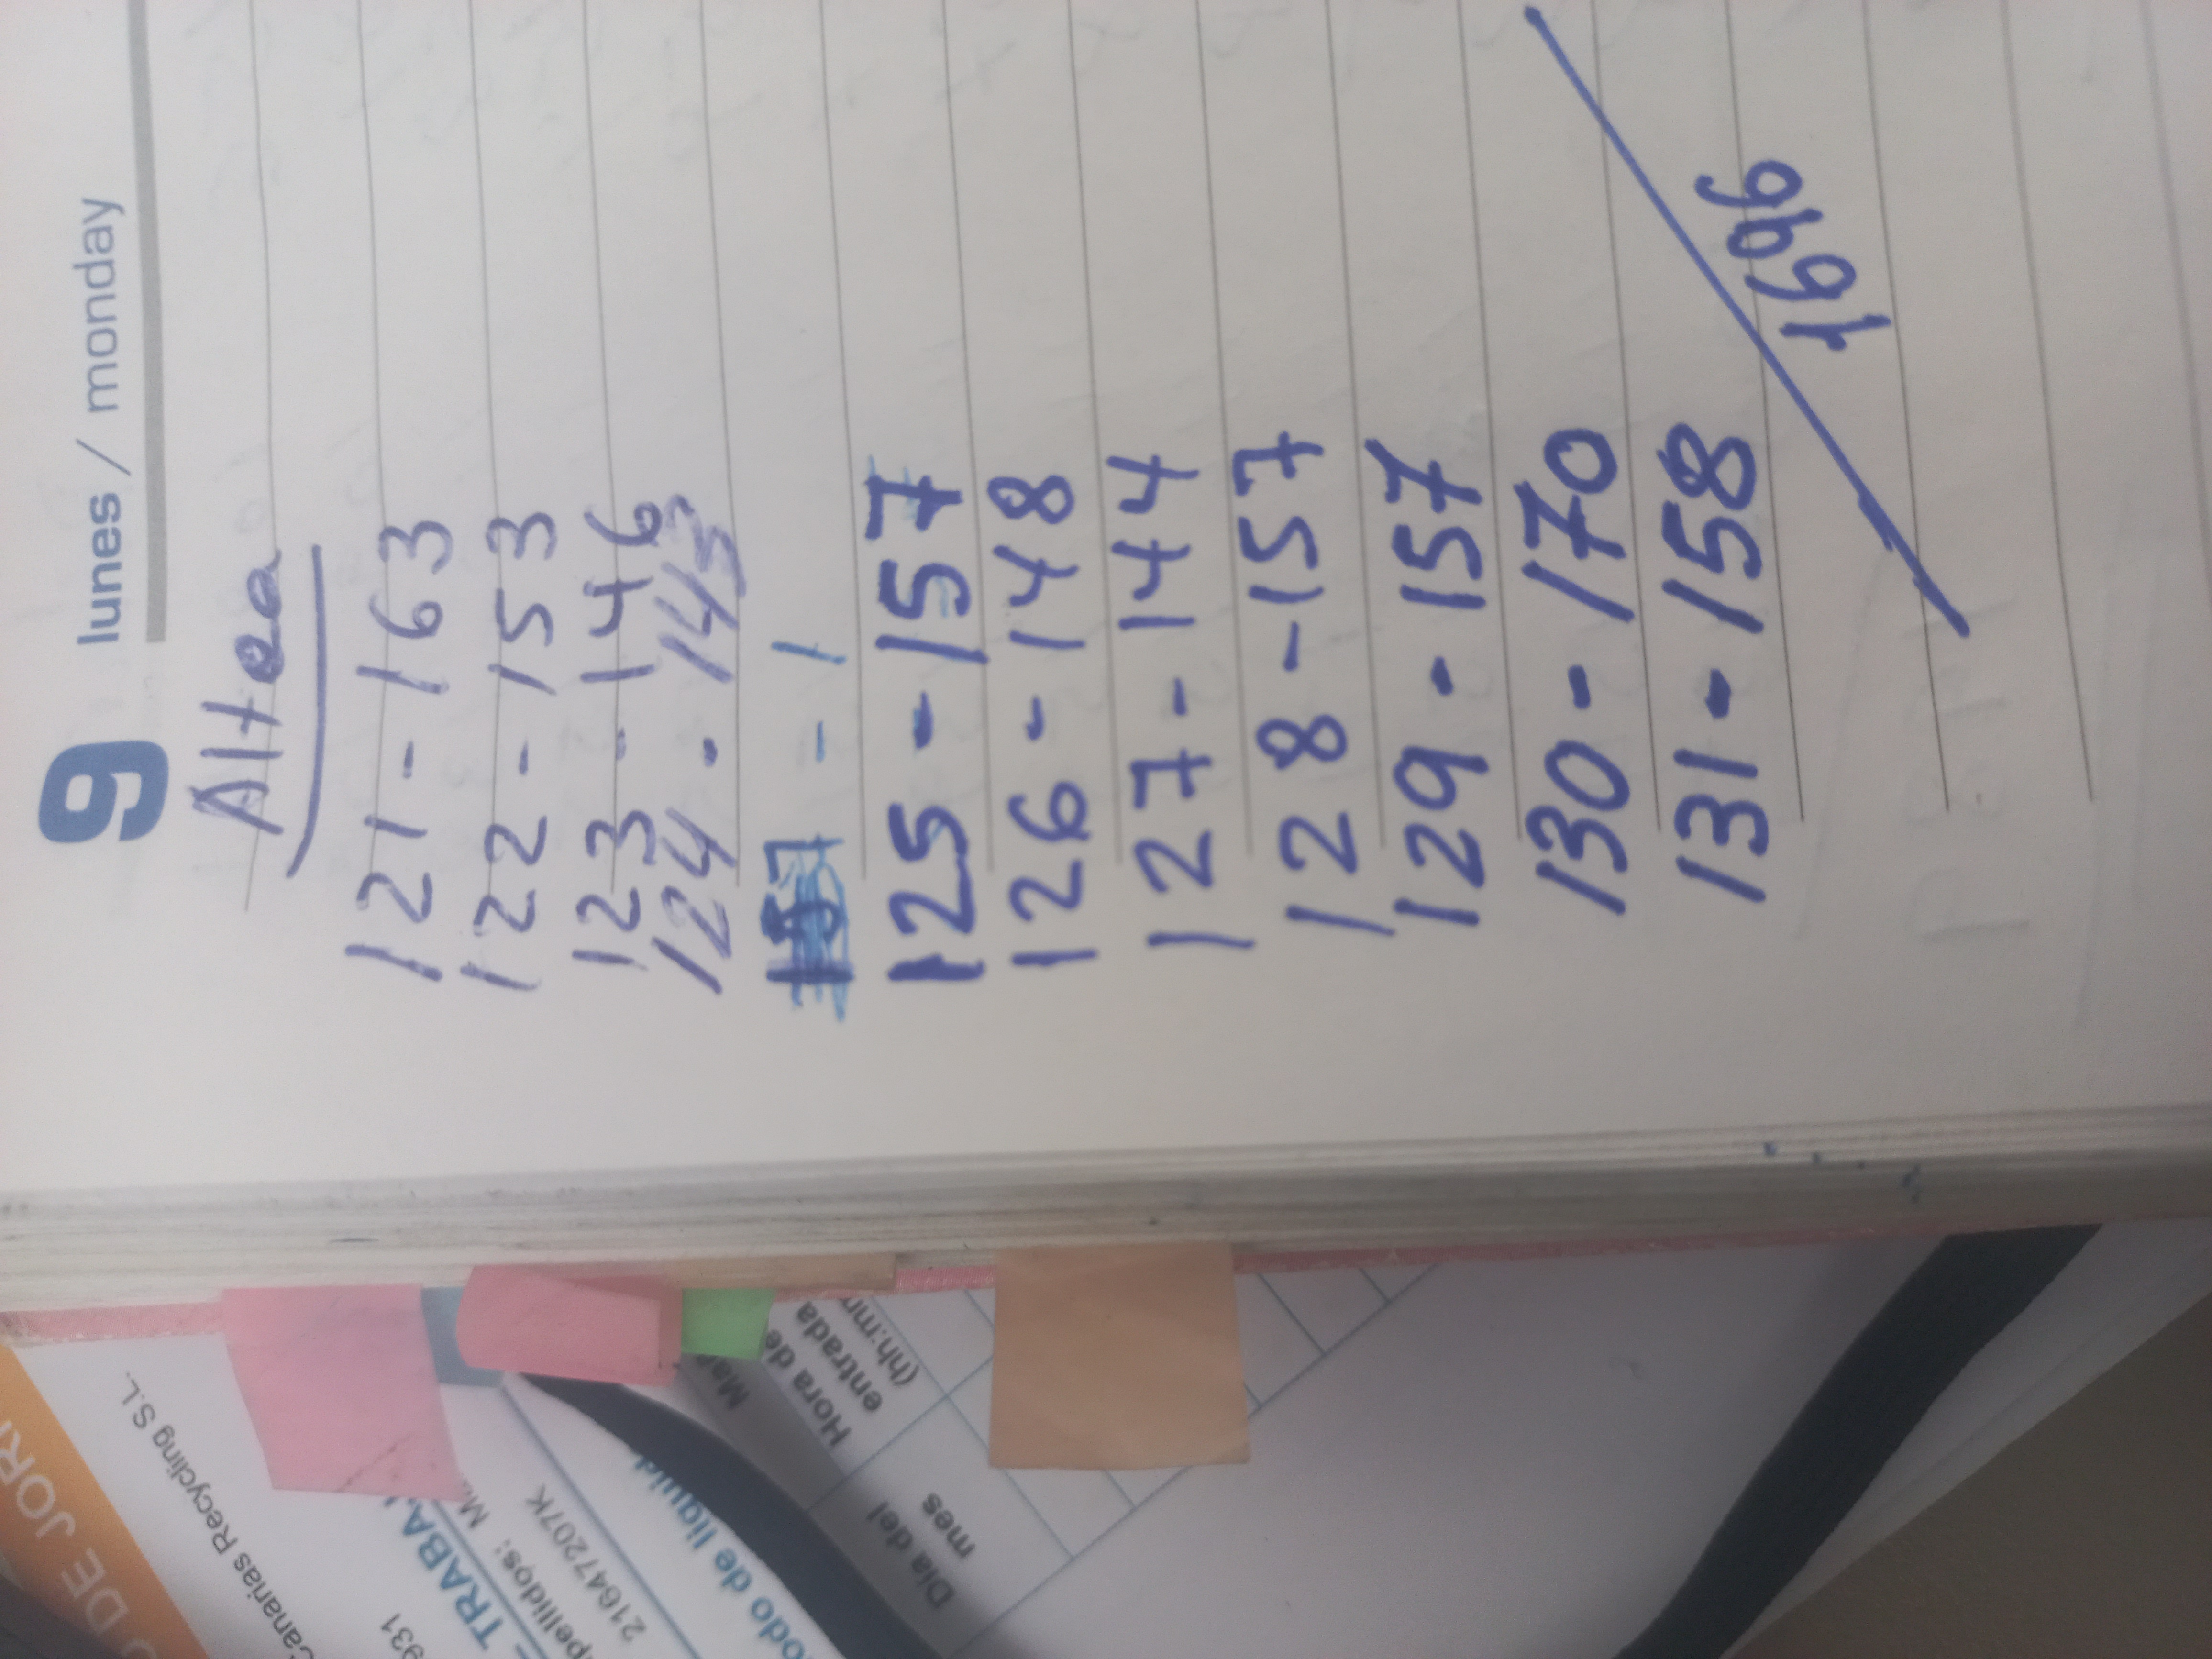 9 lunes / monday
Altea
121 - 163
122 - 153
123 - 146
124 - 145
- 1
125 - 157
126 - 148
127 - 144
128 - 157
129 - 157
130 - 170
131 - 158
1696
DE JOR
Canarias Recycling S.L.
931
TRABA
pellidos: M
21647207K
odo de liquid
Día del
mes
Hora de
entrada
(hh:mm
Ma